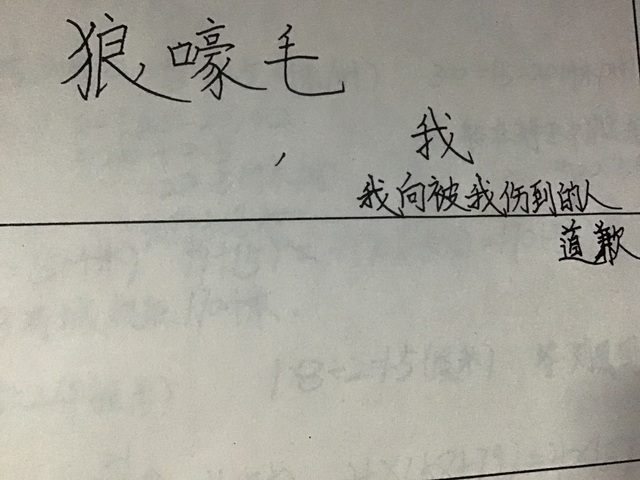 狼嚎毛
我
我向被我伤到的人
道歉